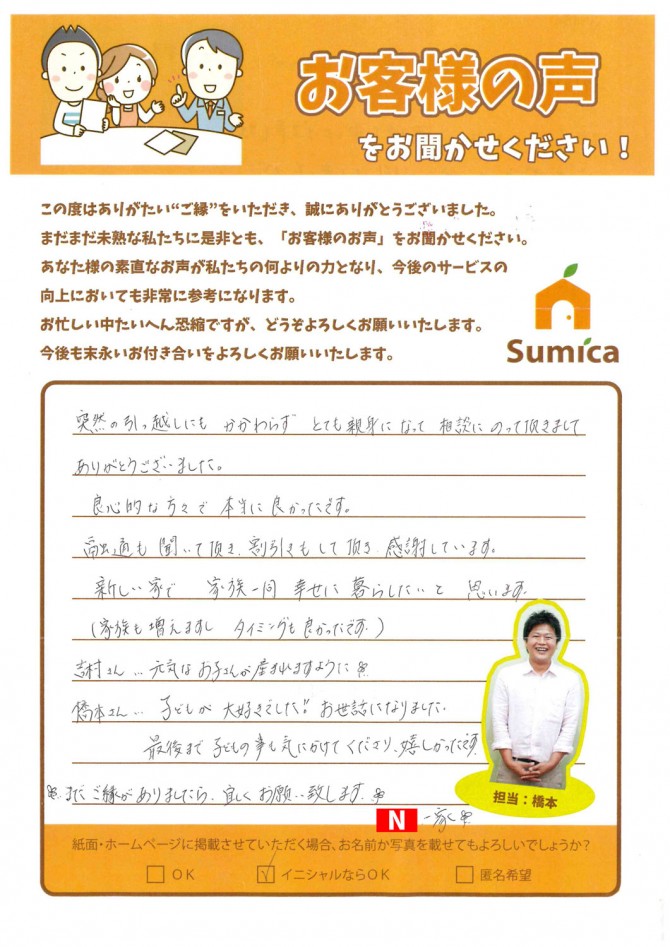 お客様の声
をお聞かせください！
この度はありがたい“ご縁”をいただき、誠にありがとうございました。
まだまだ未熟な私たちに是非とも、「お客様のお声」をお聞かせください。
あなた様の素直なお声が私たちの何よりの力となり、今後のサービスの
向上においても非常に参考になります。
お忙しい中たいへん恐縮ですが、どうぞよろしくお願いいたします。
今後も末永いお付き合いをよろしくお願いいたします。
Sumica
突然の引っ越しにも かかわらず とても親身になって 相談に のって頂きまして
ありがとうございました。
良心的な方々で 本当に良かったです。
融通も 聞いて頂き、割引きもして頂き 感謝しています。
新しい家で 家族一同 幸せに 暮らしたいと 思います。
(家族も増えますし タイミングも良かったです。)
吉村さん… 元気なお子さんが産まれますように
橋本さん… 子どもが 大好きでした!! お世話になりました。
最後まで 子どもの事も気にかけてくださり、嬉しかったです。
またご縁がありましたら、宜しくお願い致します。
N 一家
担当：橋本
紙面・ホームページに掲載させていただく場合、お名前か写真を載せてもよろしいでしょうか？
OK イニシャルならOK 匿名希望